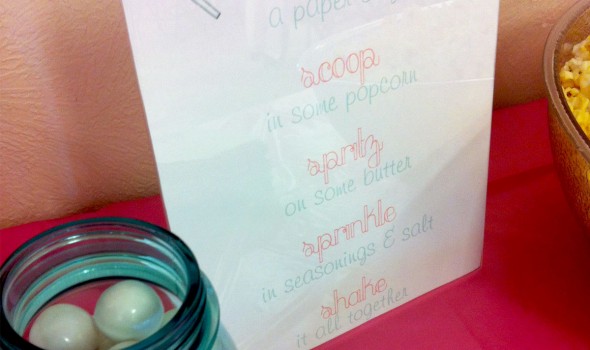 a paper
scoop
in some popcorn
spritz
on some butter
sprinkle
in seasonings & salt
shake
it all together